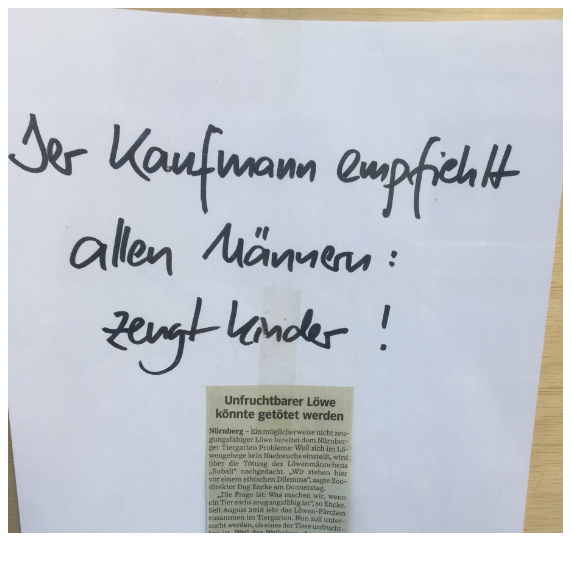 Der Kaufmann empfiehlt
allen Männern:
zeugt Kinder!
Unfruchtbarer Löwe
könnte getötet werden
Nürnberg – Ein möglicherweise nicht zeu-
gungsfähiger Löwe bereitet dem Nürnber-
ger Tiergarten Probleme: Weil sich im Lö-
wengehege kein Nachwuchs einstellt, wird
über die Tötung des Löwenmännchens
„Subali“ nachgedacht. „Wir stehen hier
vor einem ethischen Dilemma“, sagte Zoo-
direktor Dag Encke am Donnerstag.
„Die Frage ist: Was machen wir, wenn
ein Tier nicht zeugungsfähig ist“, so Encke.
Seit August 2018 lebt das Löwen-Pärchen
zusammen im Tiergarten. Nun soll unter-
sucht werden, ob eines der Tiere unfrucht-
bar ist. Weil das Weibchen